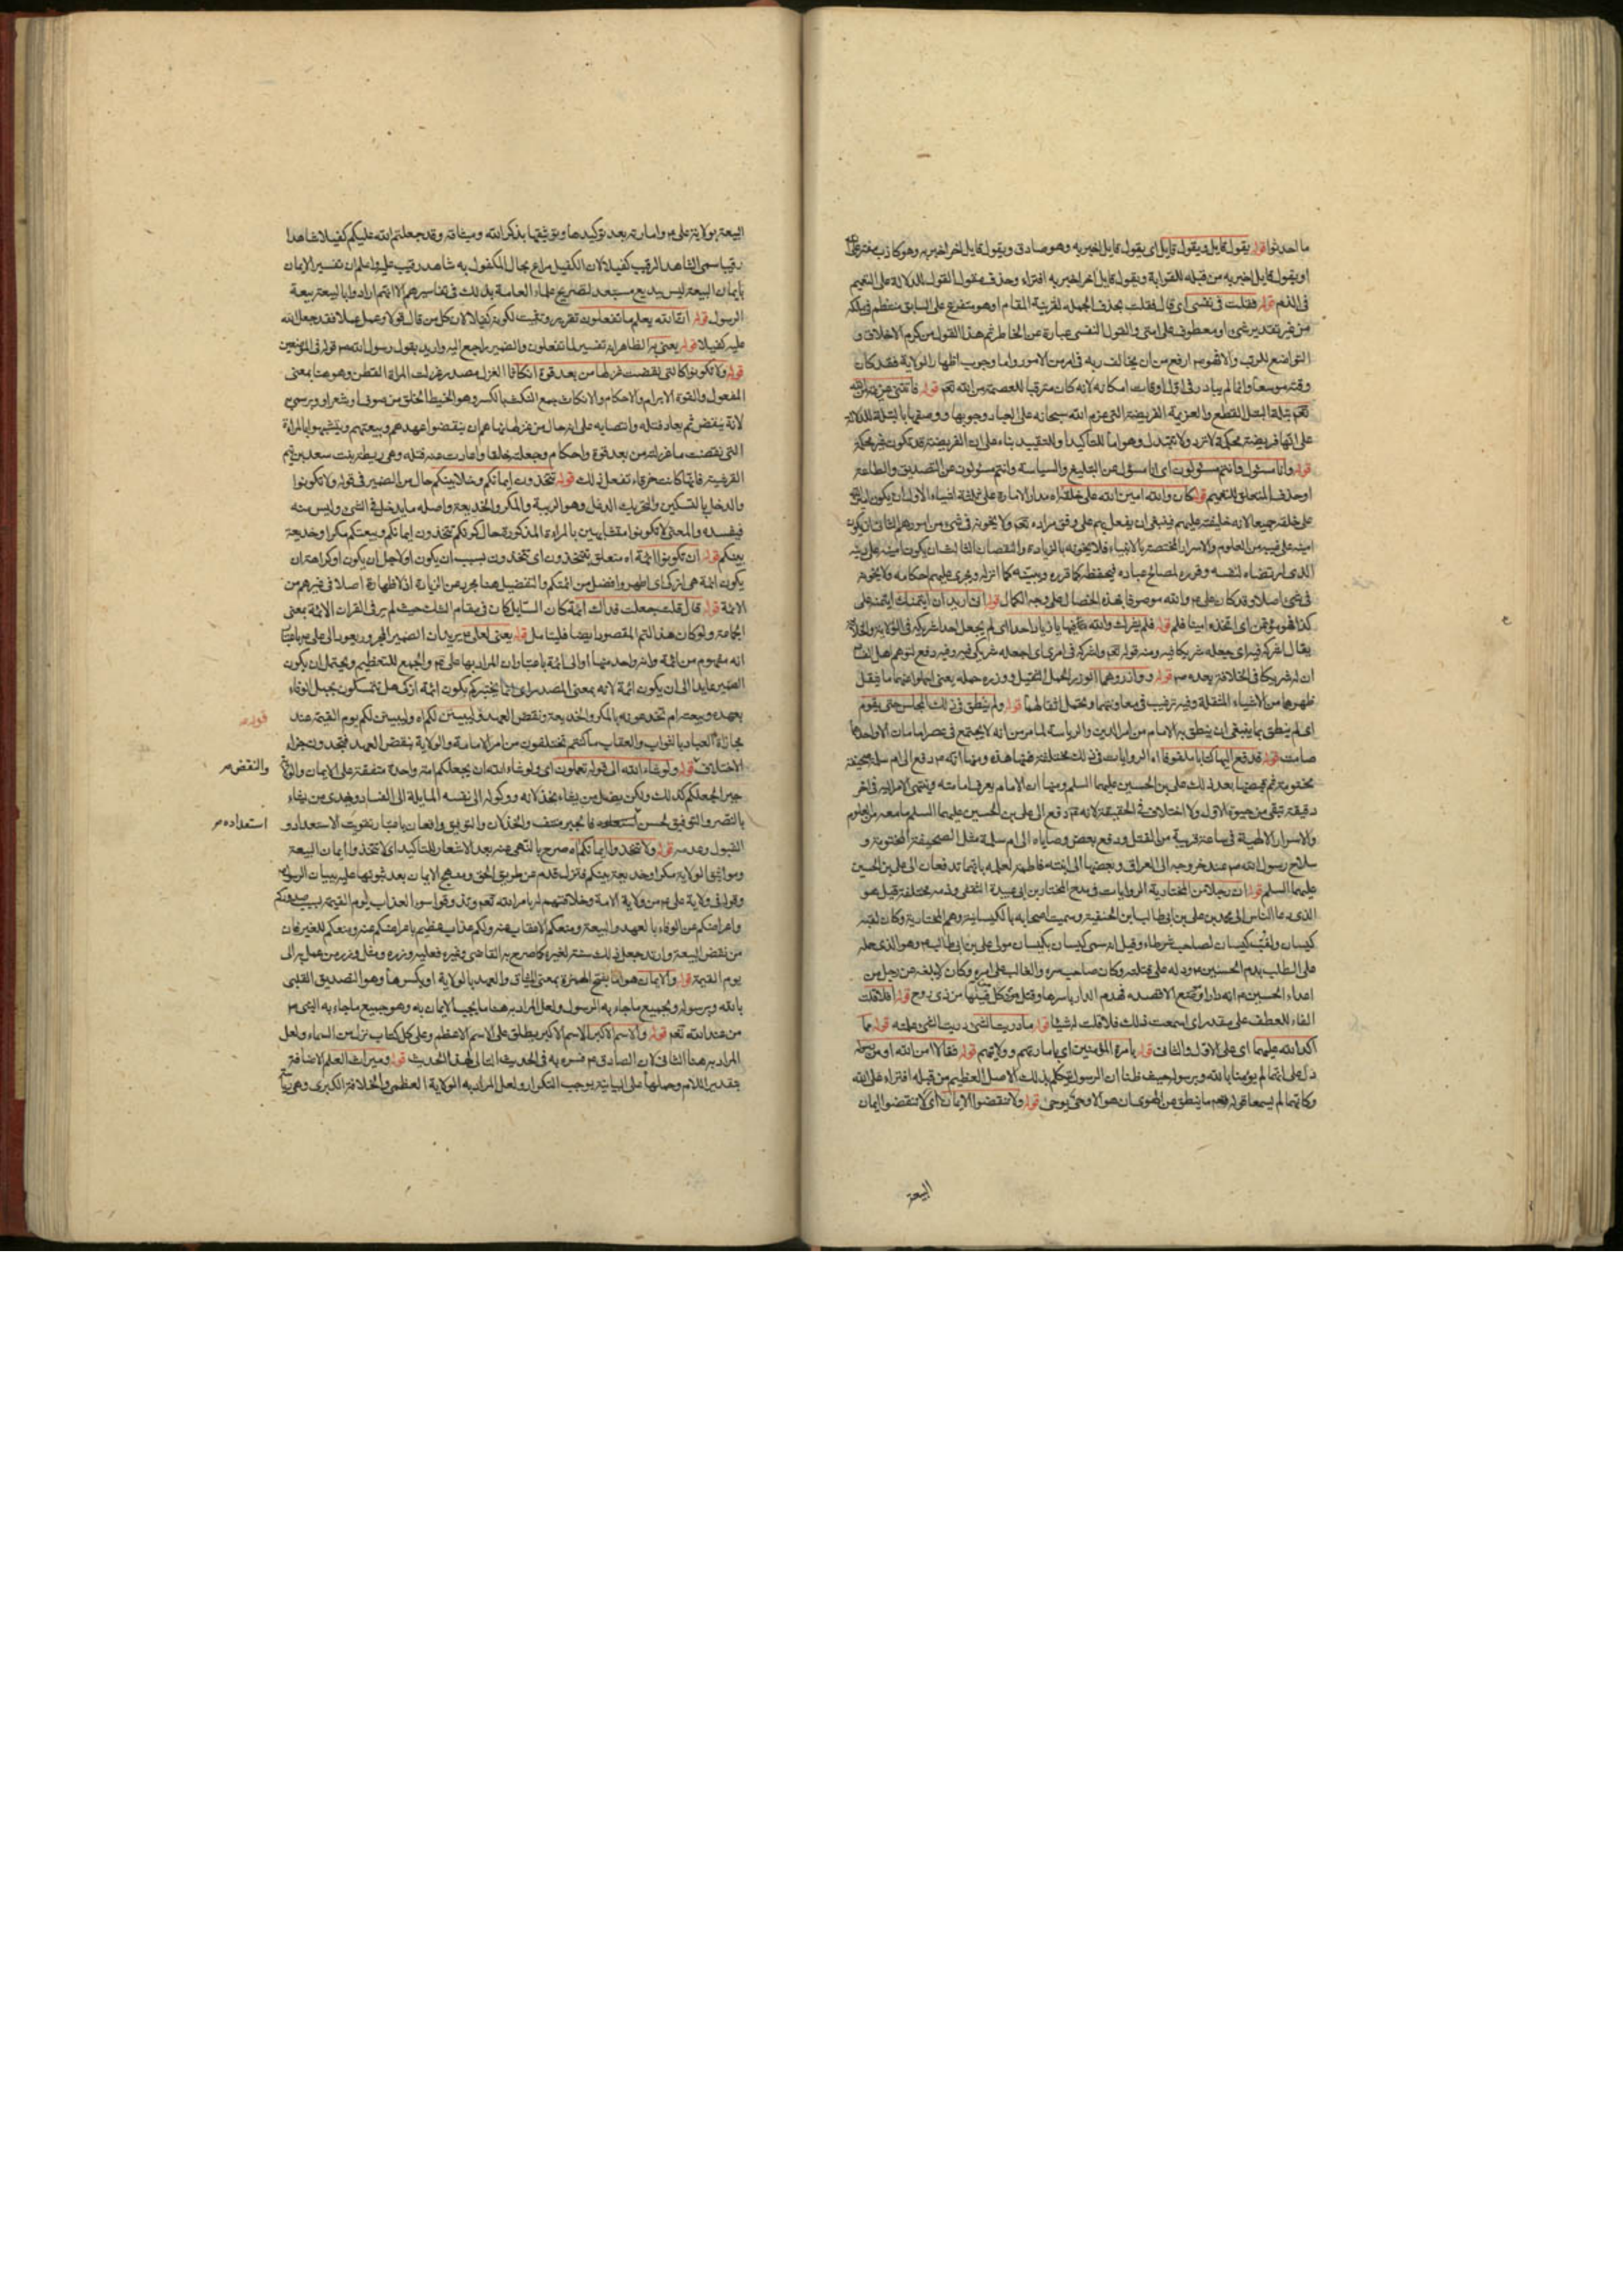 ما احدثوا قوله يقول قايل ويقول قايل اى يقول قايل لغيريه وهو صادق ويقول قايل اخر لغيريه وهو كاذب مفتر
او يقول قايل لخبريه من قبله للقرابة ويقول قايل اخر لخبريه افتراء وحذف مقول القول للدلالة على التعميم
فى الذم قوله فقلت فى نفسى اى قال فقلت بحذف الجملة لقرينة المقام او هو متفرع على السابق
من غير تقدير شئ او معطوف على امتى والقول النفسى عبارة عن الخاطر ثم هذا القول من كرم الاخلاق و
التواضع للرب والا فهو ص ارفع من ان يخالف ربه فى امر من الامور واما وجوب اظهار الولاية فقد كان
وقته موسعا وانما لم يبادر فى اول اوقات امكانه لانه كان مترقبا للعصمة من الله تعم قوله فاتتنى عزيمة من الله
تعم بتلة البتل القطع والعزيمة الفريضة التى عزم الله سبحانه على العباد وجوبها ووصفها بالبتلة للدلالة
على انها فريضة محكمة لا ترد ولا تتبدل وهو اما للتأكيد او للتقييد بناء على ان الفريضة قد تكون غير محكمة
قوله وانا مسئول وانتم مسئولون اى انا مسؤل عن التبليغ والسياسة وانتم مسئولون عن التصديق والطاعة
او حذف المتعلق للتعميم قوله كان والله امين الله على خلقه اه مدار الامارة على ثلاثة اشياء الاول ان يكون امينه
على خلقه جميعا لانه خليفته عليهم فينبغى ان يفعل بهم على وفق مراده تعم ولا يخونه فى شئ من امورهم الثانى ان يكون
امينه على غيبه من العلوم والاسرار المختصة بالانبياء فلا يخونه بالزيادة والنقصان الثالث ان يكون امينه على دينه
الذى ارتضاه لنفسه وقرره لمصالح عباده فيحفظه كما قرره ويبينه كما انزله ويجرى عليهم احكامه ولا يخونه
فى شئ اصلا وقد كان على ع والله موصوفا بهذه الخصال على وجه الكمال قوله انى اريد ان ائتمنك ائتمنه على
كذا فهو مؤتمن اى اتخذه امينا فلم قوله فلم يشرك والله فيها يا زياد احدا اى لم يجعل احدا شريكه فى الولاية والخلافة
يقال اشركه فيه اى جعله شريكا فيه ومنه قوله تعم واشركه فى امرى اى اجعله شريكى فيه وفيه دفع لتوهم
ان له شريكا فى الخلافة بعده ص قوله ووازروهما الوزير الحمل الثقيل ووزره حمله يعنى احملوا عنهما ما يثقل
ظهورهما من الاشياء المثقلة وفيه ترغيب فى معاونتهما وتحمل اثقالهما قوله ولم ينطق فى ذلك المجلس حتى يقوم
اى لم ينطق بما ينبغى ان ينطق به الامام من امر الدين والرياسة لما مر من انه لا يجتمع فى عصر امامان الا واحدهما
صامت قوله قد دفع اليها كتابا ملفوفا اه الروايات فى ذلك مختلفة فمنها هذه ومنها انه ع دفع الى ام سلمة صحيفة
مختومة ثم قبضها بعد ذلك على بن الحسين عليهما السلم ومنها ان الامام يعرف امامته وينتهى الامر اليه فى اخر
دقيقة تبقى من حيوة الاول ولا اختلاف فى الحقيقة لانه ع دفع الى على بن الحسين عليهما السلم ما معه من العلوم
والاسرار الالهية فى ساعة قريبة من القتل ودفع بعض وصاياه الى ام سلمة مثل الصحيفة المختومة و
سلاح رسول الله ص عند خروجه الى العراق وبعضها الى ابنته فاطمة لعلمه بانهما تدفعان الى على بن الحسين
عليهما السلم قوله ان رجلا من المختارية الروايات فى مدح المختار بن ابى عبيدة الثقفى وذمه مختلفة قيل هو
الذى دعا الناس الى محمد بن على بن ابى طالب ابن الحنفية وسميت اصحابه بالكيسانية وهم المختارية وكان لقبه
كيسان ولقب كيسان لصاحب شرطاه وقيل انه سمى كيسان بكيسان مولى على بن ابى طالب ع وهو الذى حمله
على الطلب بدم الحسين ع ودله على قتلته وكان صاحب سره والغالب على امره وكان لا يبلغه عن رجل من
اعداء الحسين ع انه دار او موضع الا قصده فهدم الدار باسرها وقتل كل من فيها من ذى روح قوله افلا قلت
الفاء للعطف على مقدر اى اسمعت ذلك فلا قلت له شيئا قوله ما دريت الشئ دريت الشئ علمته قوله مما
اكد الله عليهما اى على الاول والثانى قوله بامرة المؤمنين اى بامارتهم وولايتهم قوله فقالا امن الله او من رسوله
دل على انهما لم يومنا بالله وبرسوله حيث ظنا ان الرسول تكلم بذلك الاصل العظيم من قبله افتراء على الله
وكانهما لم يسمعا قوله تعم ما ينطق عن الهوى ان هو الا وحى يوحى قوله ولا تنقضوا الايمان اى لا تنقضوا ايمان
البيعة
البيعة بولاية على ع وامارته بعد توكيدها وتوثيقها بذكر الله وميثاقه وقد جعلتم الله عليكم كفيلا شاهدا
رقيبا سمى الشاهد الرقيب كفيلا لان الكفيل مراع بحال المكفول به شاهد رقيب عليه واعلم ان تفسير الايمان
بايمان البيعة ليس ببديع مستبعد لتصريح علماء العامة بذلك فى تفاسيرهم الا انهم ارادوا بالبيعة بيعة
الرسول قوله ان الله يعلم ما تفعلون تقرير وتثبيت لكونه كفيلا لان كل من قال قولا وعمل عملا فقد جعل الله
عليه كفيلا قوله يعنى به الظاهر انه تفسير لما تفعلون والضمير راجع اليه واريد بقول رسول الله ص قوله فى الموضعين
قوله ولا تكونوا كالتى نقضت غزلها من بعد قوة انكاثا الغزل مصدر غزلت المراة القطن وهو هنا بمعنى
المفعول والقوة الابرام والاحكام والانكاث جمع النكث بالكسر وهو الخيط الخلق من صوف او شعر او وبر سمى
لانه ينقض ثم يعاد فتله وانتصابه على انه حال من غزلها نهاهم ان ينقضوا عهدهم وبيعتهم ويتشبهوا بالمراة
التى نقضت ما غزلته من بعد قوة واحكام وجعلته خلقا واعادت فتله وهى ريطة بنت سعد بن تيم
القرشية فانها كانت خرقاء تفعل ذلك قوله تتخذون ايمانكم دخلا بينكم حال من الضمير فى قوله ولا تكونوا
والدخل بالتسكين والتحريك الدغل وهو الريبة والمكر والخديعة واصله ما يدخل فى الشئ وليس منه
فيفسده والمعنى لا تكونوا متشابهين بالمراءة المذكورة حال كونكم تتخذون ايمانكم وبيعتكم مكرا وخديعة
بينكم قوله ان تكونوا ائمة اه متعلق بتتخذون اى تتخذون بسبب ان يكون او لاجل ان يكون او كراهة ان
يكون ائمة هى ازكى اى اطهر وافضل من ائمتكم والتفضيل هنا مجرد عن الزيادة اذ لا طهارة اصلا فى غيرهم من
الائمة قوله قال قلت جعلت فداك ائمة كان السايل كان فى مقام الشك حيث لم ير فى القران الائمة بمعنى
الجماعة ولو كان هذا اتم المقصود ايضا فليتامل قوله يعنى لعلى ع يريد ان الضمير المجرور يعود الى على ع باعتبار
انه مفهوم من ائمة وانه واحد منها او الى ائمة باعتبار ان المراد بها على ع والجمع للتعظيم ويحتمل ان يكون
الضمير عايدا الى ان يكون ائمة لانه بمعنى المصدر اى انما يختبركم بكون ائمة ازكى هل تتمسكون بحبل الوفاء
بعهده وبيعته ام تخدعونه بالمكر والخديعة ونقض العهد وليبينن لكم اه وليبينن لكم يوم القيمة عند
مجازاة العباد بالثواب والعقاب ما كنتم تختلفون من امر الامامة والولاية بنقض العهد فتجدون جزاء
الاختلاف قوله ولو شاء الله الى قوله تعملون اى ولو شاء الله ان يجعلكم امة واحدة متفقة على الايمان والوفاء
جبرا لجعلكم كذلك ولكن يضل من يشاء بخذلانه ووكوله الى نفسه المايلة الى الفساد ويهدى من يشاء
بالنصر والتوفيق لحسن استعداده فالجبر منتف والخذلان والتوفيق واقعان باعتبار تفويت الاستعداد و
القبول وعدمه قوله ولا تتخذوا ايمانكم اه صرح بالنهى عنه بعد الاشعار للتأكيد اى لا تتخذوا ايمان البيعة
ومواثيق الولاية مكرا وخديعة بينكم فتزل قدم عن طريق الحق ومنهج الايمان بعد ثبوتها عليه ببيان الرسول
وقوله فى ولاية على ع من ولاية الامة وخلافتهم له بامر الله تعم وتذوقوا سوء العذاب يوم القيمة بسبب صدودكم
واعراضكم عن الوفاء بالعهد والبيعة ومنعكم الاعقاب عنه ولكم عذاب عظيم باعراضكم عنه ومنعكم للغير فان
من نقض البيعة وارتد جعل ذلك سنة لغيره كما صرح به القاضى وغيره فعليه وزره ومثل وزر من عمل به الى
يوم القيمة قوله والايمان هو اما بفتح الهمزة بمعنى الميثاق والعهد بالولاية او بكسرها وهو التصديق القلبى
بالله وبرسوله وبجميع ما جاء به الرسول ولعل المراد به هنا ما يجب الايمان به وهو جميع ما جاء به النبى ص
من عند الله تعم قوله والاسم الاكبر الاسم الاكبر يطلق على الاسم الاعظم وعلى كل كتاب نزل من السماء ولعل
المراد به هنا الثانى لان الصادق ع فسره به فى الحديث التالى لهذا الحديث قوله وميراث العلم الاضافة
بتقدير اللام وحملها على البيانية يوجب التكرار ولعل المراد به الولاية العظمى والخلافة الكبرى وهى
قوله
والنقض صر
استعداده صر